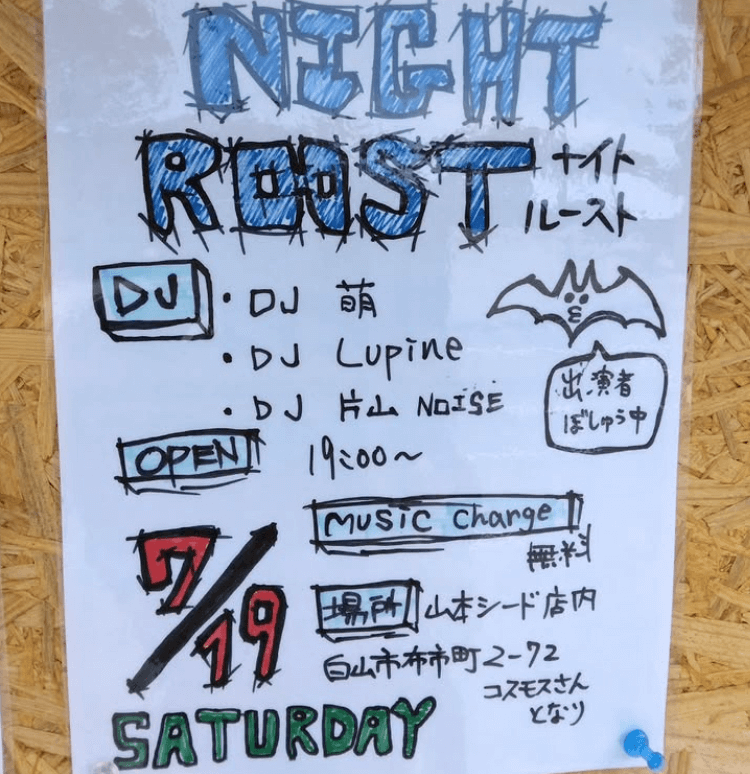 NIGHT
ROOST
ナイト
ルースト
DJ
・DJ 萌
・DJ Lupine
・DJ 片山 NOISE
出演者
ぼしゅう中
OPEN 19:00〜
MUSIC Charge
無料
7/19
SATURDAY
場所 山本シード店内
白山市布市町2-72
コスモスさん
となり